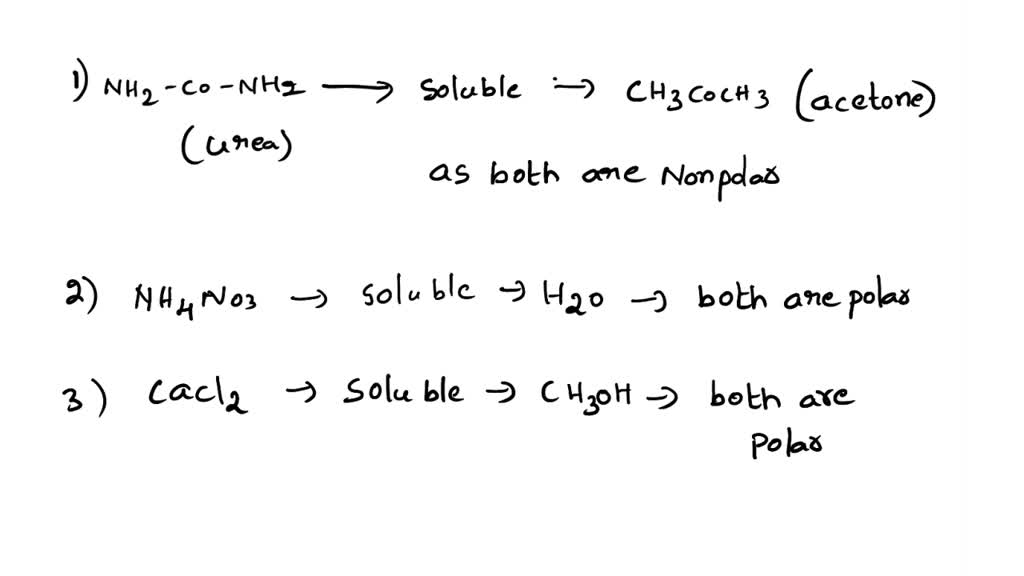 1) NH2-CO-NH2 → Soluble → CH3COCH3 (acetone)
(urea)
as both are Nonpolar
2) NH4NO3 → soluble → H2O → both are polar
3) CaCl2 → Soluble → CH3OH → both are
polar